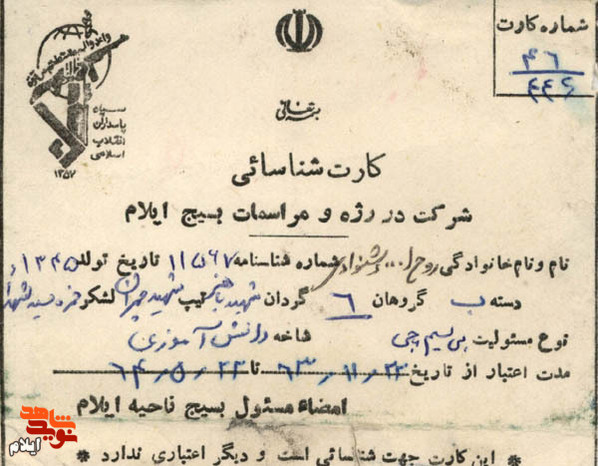 شماره کارت
۴۶
۴۴۶
سپاه
پاسداران
انقلاب
اسلامی
۱۳۵۷
بسمه تعالی
کارت شناسائی
شرکت در رژه و مراسمات بسیج ایلام
نام و نام خانوادگی روح ا... شماره شناسنامه ۱۱۵۶۷ تاریخ تولد ۱۳۴۵
دسته ب گروهان ۶ گردان شهید باهنر تیپ شهید چمران لشکر
نوع مسئولیت بی سیم چی شاخه دانش آموزی
مدت اعتبار از تاریخ ۶۳٫۱۱٫۲۲ تا ۶۴٫۵٫۲۲
امضاء مسئول بسیج ناحیه ایلام
* این کارت جهت شناسائی است و دیگر اعتباری ندارد *
نوید شاهد
ایلام